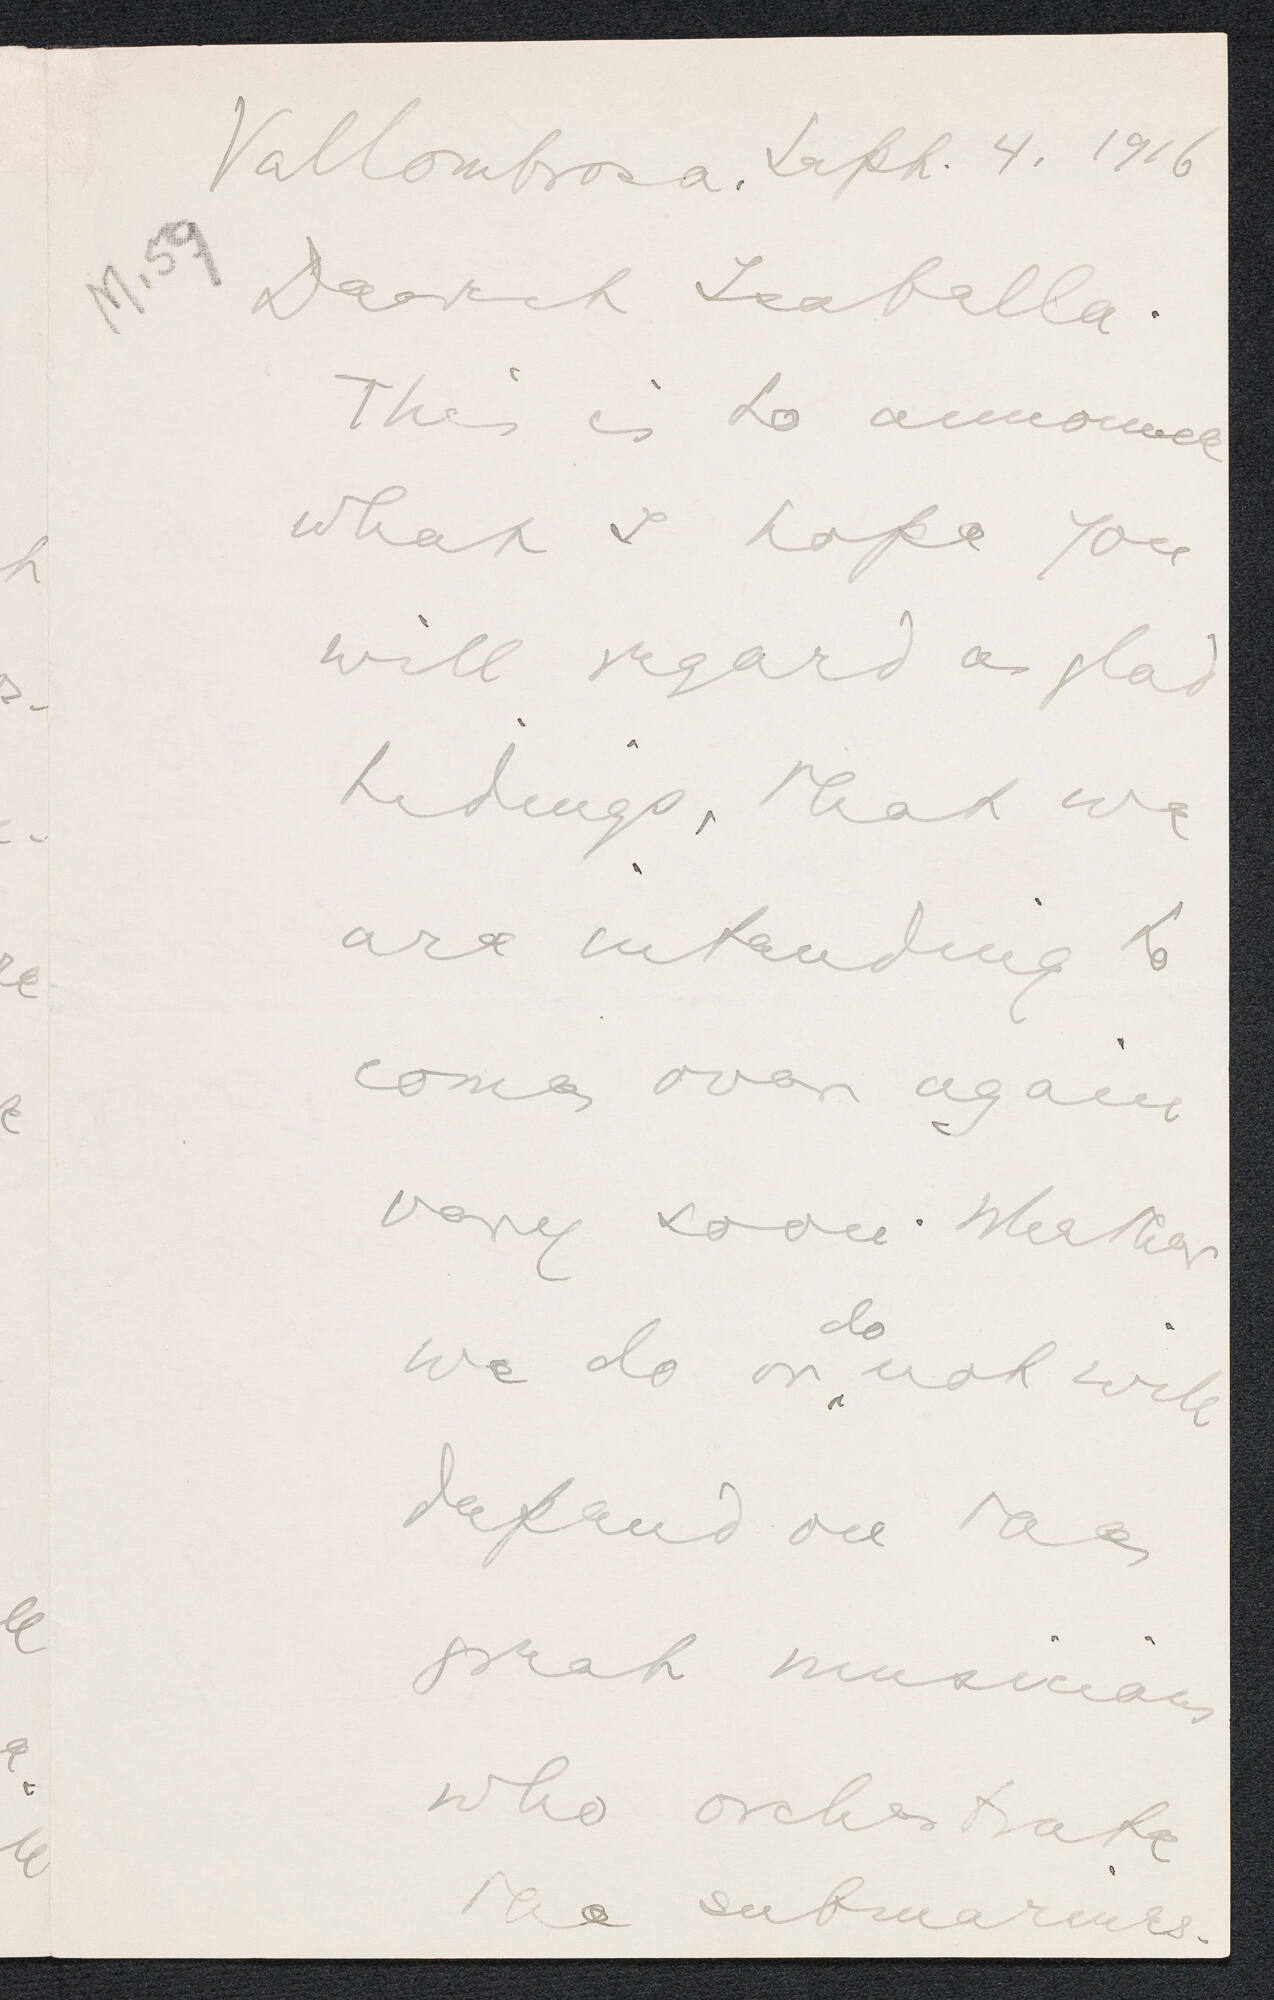 Vallombrosa. Sept. 4. 1916
M.59
Dearest Isabella.
This is to announce
what I hope you
will regard as glad
tidings, that we
are intending to
come over again
very soon. Whether
do
we do or not will
depend on the
great musicians
who orchestrate
the submarines.